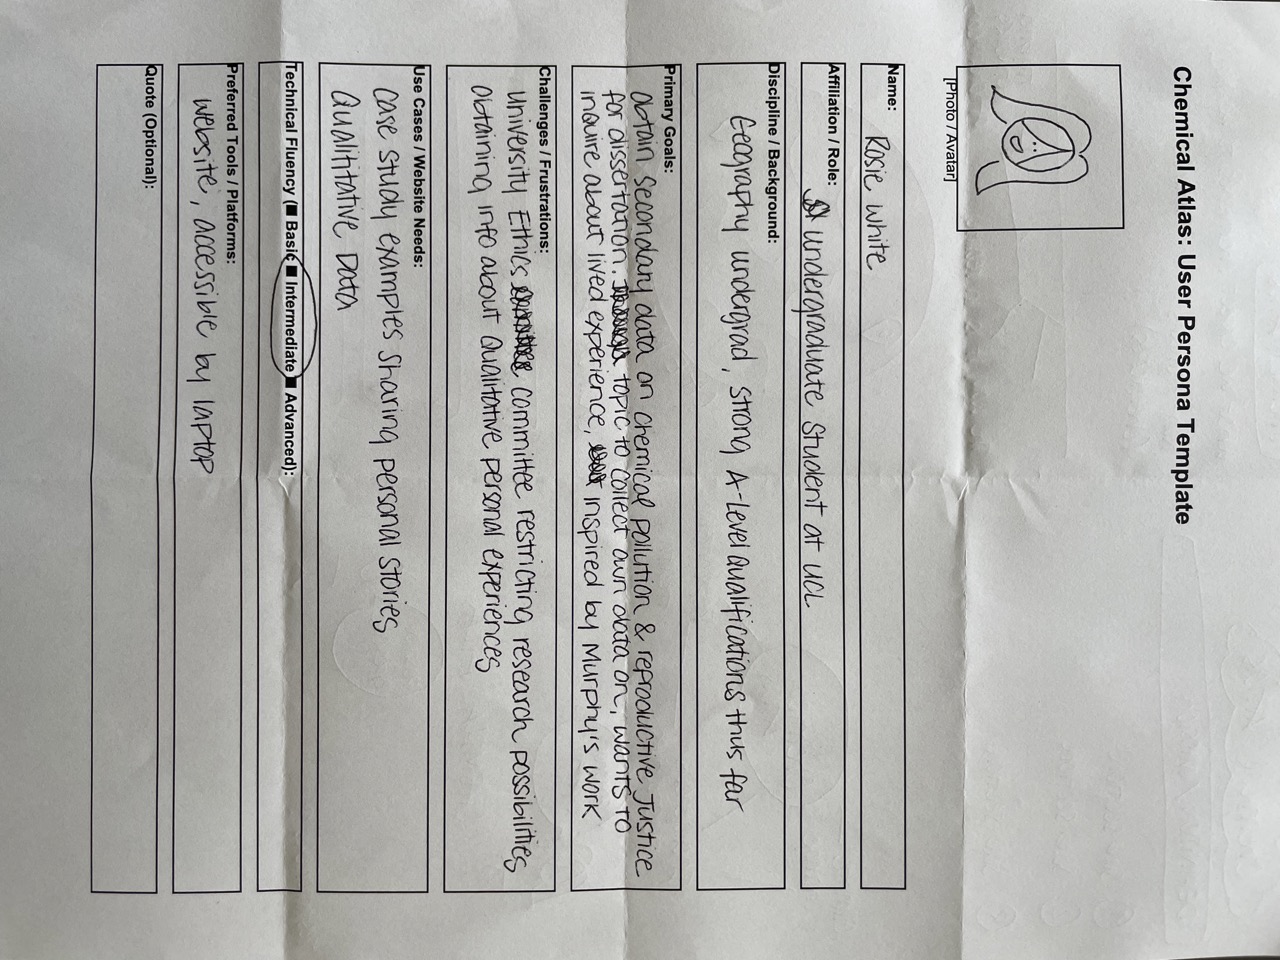 Chemical Atlas: User Persona Template
[Photo / Avatar]
Name:
Rosie White
Affiliation / Role:
undergraduate student at UCL
Discipline / Background:
Geography undergrad, strong A-Level Qualifications thus far
Primary Goals:
Obtain secondary data on chemical pollution & reproductive justice
for dissertation. topic to collect own data on, wants to
inquire about lived experience, inspired by Murphy's work
Challenges / Frustrations:
University Ethics committee restricting research possibilities
Obtaining info about Qualitative personal experiences
Use Cases / Website Needs:
Case study examples sharing personal stories
Qualititative Data
Technical Fluency (■ Basic ■ Intermediate ■ Advanced):
Preferred Tools / Platforms:
Website, accessible by laptop
Quote (Optional):